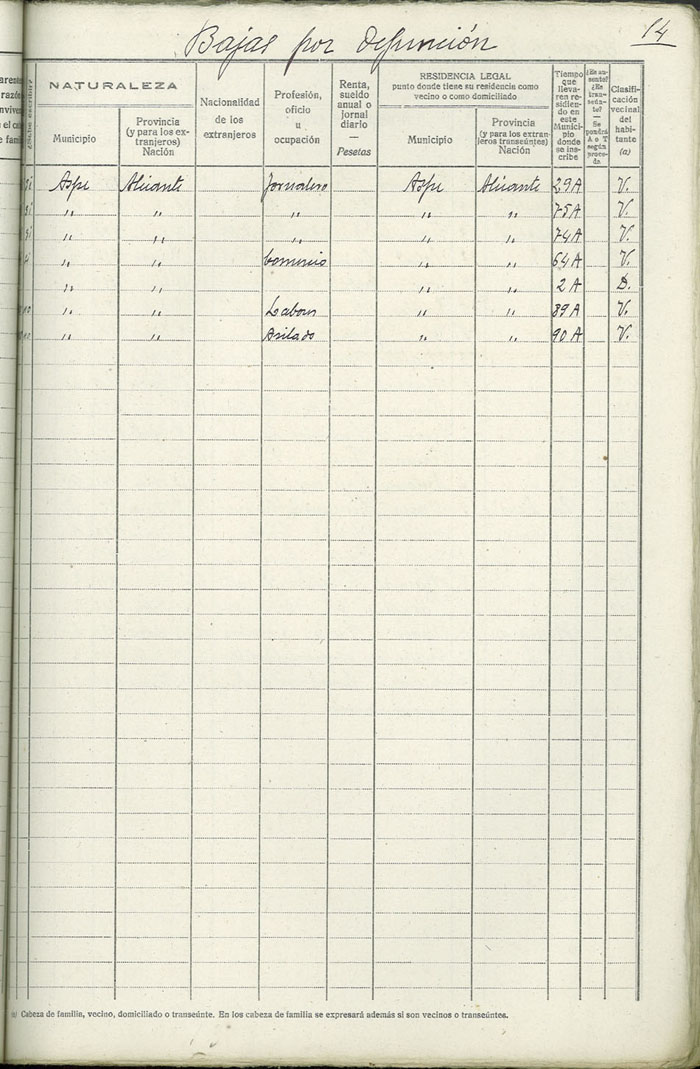 Bajas por defunción
14
NATURALEZA
Municipio
Provincia
(y para los ex-
tranjeros)
Nación
Nacionalidad
de los
extranjeros
Profesión,
oficio
u
ocupación
Renta,
sueldo
anual o
jornal
diario
—
Pesetas
RESIDENCIA LEGAL
punto donde tiene su residencia como
vecino o como domiciliado
Municipio
Provincia
(y para los extran-
jeros transeúntes)
Nación
Tiempo
que
lleva-
ren re-
sidien-
do en
este
Munici-
pio
donde
se ins-
cribe
¿Es au-
sente?
¿Es
tran-
seún-
te?
—
Se
pondrá
A o T
según
proce-
da
Clasifi-
cación
vecinal
del
habi-
tante
(a)
Aspe Alicante Jornalero Aspe Alicante 29 A V.
" " " " " 75 A V.
" " " " " 74 A V.
" " Comercio " " 64 A V.
" " " " 2 A D.
" " Labores " " 89 A V.
" " Asilado " " 90 A V.
(a) Cabeza de familia, vecino, domiciliado o transeúnte. En los cabeza de familia se expresará además si son vecinos o transeúntes.